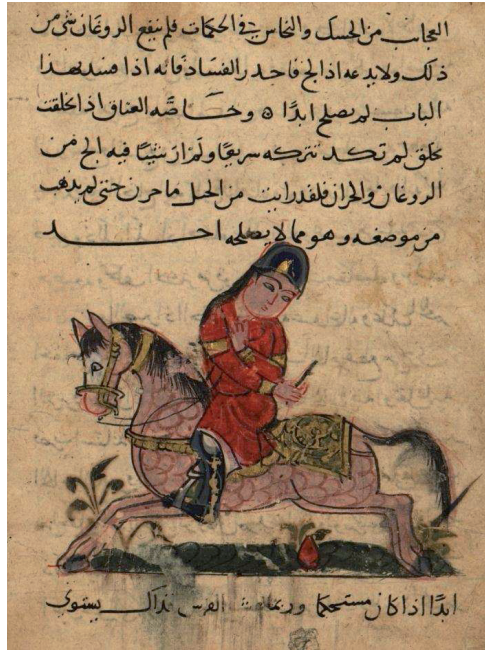 العجاب من الحسك والنخاس في الحكمات فلم ينفع الروغان شى من
ذلك ولا يدعه اذا لج فاحذر الفساد فانه اذا فسد بهذا
الباب لم يصلح ابدًا ۞ وخاصه العناق اذا تخلقت
بخلق لم تكد تتركه سريعًا ولم ار شيئًا فيه الج من
الروغان والحران فلقد رايت من الخيل ما حرن حتى لم يذهب
من موضعه وهو مما لا يصلحه احد
ابدًا اذا كان مستحكما وربما الفرس بذاك يستوى